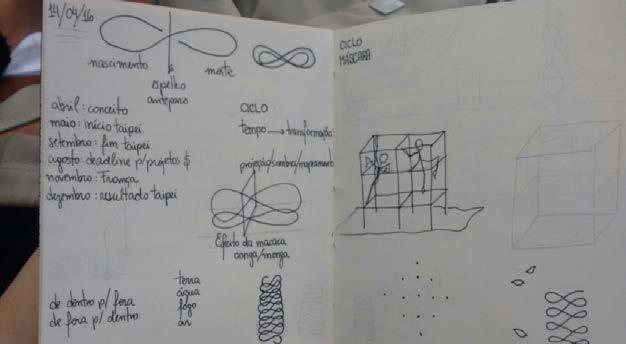 14/04/16
nascimento
morte
espelho
anteparo
abril: conceito
maio: início taipei
setembro: fim taipei
agosto: deadline p/projetos $
novembro: França
dezembro: resultado taipei
CICLO
tempo → transformação
projeção/sombra/mapeamento
Efeito da macaca
conga/monga
de dentro p/ fora
de fora p/ dentro
terra
água
fogo
ar
CICLO
MÁSCARA